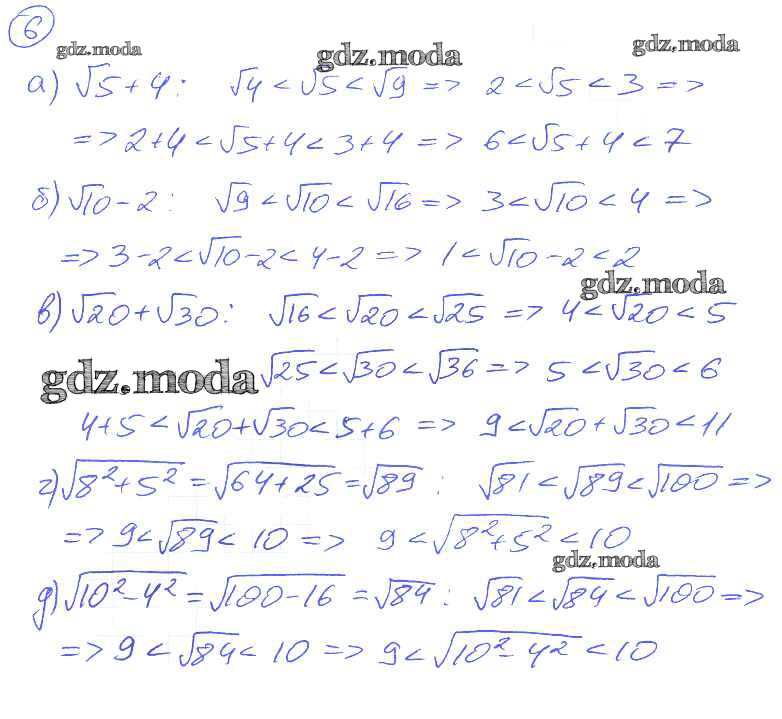 6
gdz.moda gdz.moda gdz.moda
а) √5+4: √4<√5<√9 => 2<√5<3 =>
=> 2+4<√5+4<3+4 => 6<√5+4<7
б) √10-2: √9<√10<√16 => 3<√10<4 =>
=> 3-2<√10-2<4-2 => 1<√10-2<2
gdz.moda
в) √20+√30: √16<√20<√25 => 4<√20<5
gdz.moda √25<√30<√36 => 5<√30<6
4+5<√20+√30<5+6 => 9<√20+√30<11
г) √8²+5² = √64+25 = √89: √81<√89<√100 =>
=> 9<√89<10 => 9<√8²+5²<10
gdz.moda
д) √10²-4² = √100-16 = √84: √81<√84<√100 =>
=> 9<√84<10 => 9<√10²-4²<10